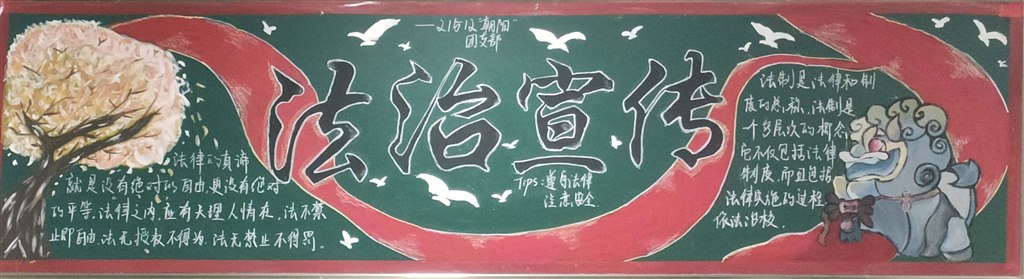 —21与12“朝阳”
团支部
法治宣传
法律的真谛
就是没有绝对的自由,更没有绝对
的平等。法律之内,应有天理人情在,法不禁
止即自由,法无授权不得为,法无禁止不得罚。
Tips:遵守法律
注意安全
法制是法律和制
度的总称。法制是
一个多层次的概念
它不仅包括法律
制度,而且包括
法律实施的过程
依法治校.